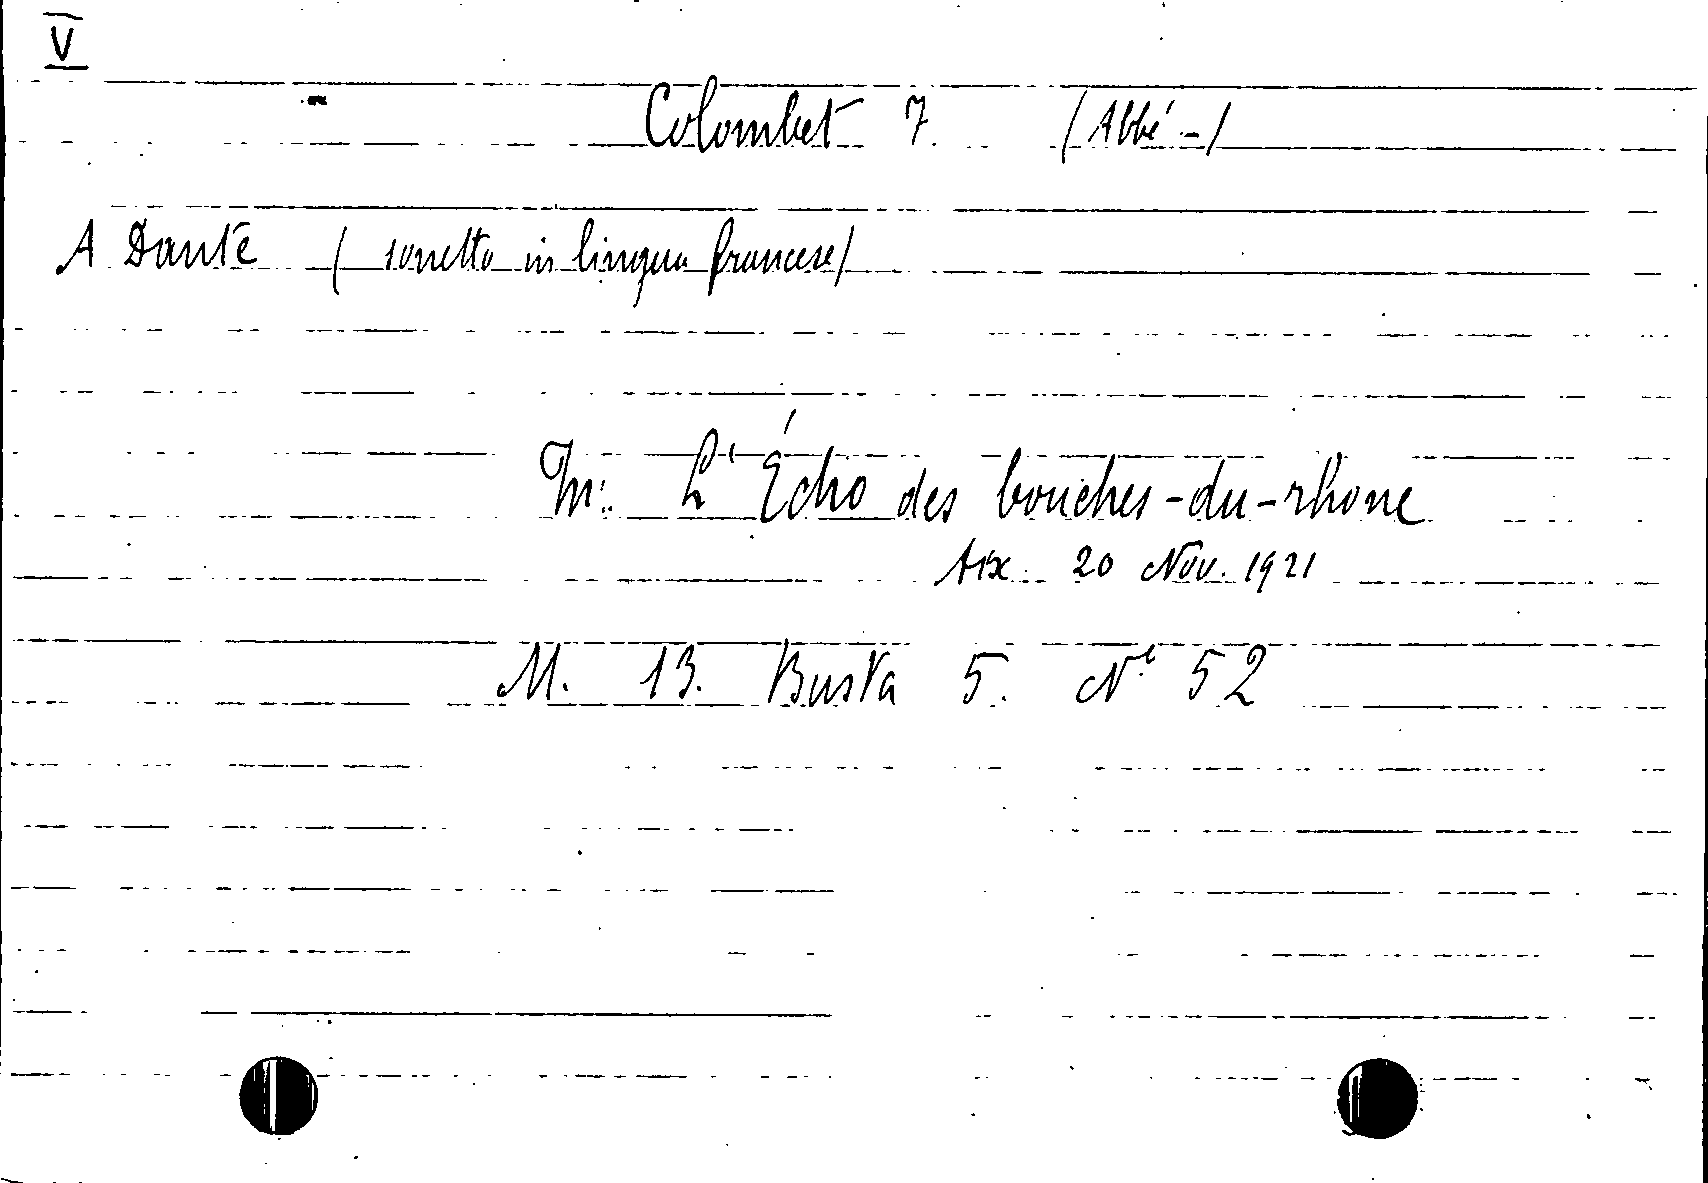 V
Colombet 7. (Abbé -)
A Dante (sonetto in lingua francese)
In: L'Écho des bouches-du-rhone
Aix. 20 Nov. 1921
M. 13. Busta 5. N.º 52